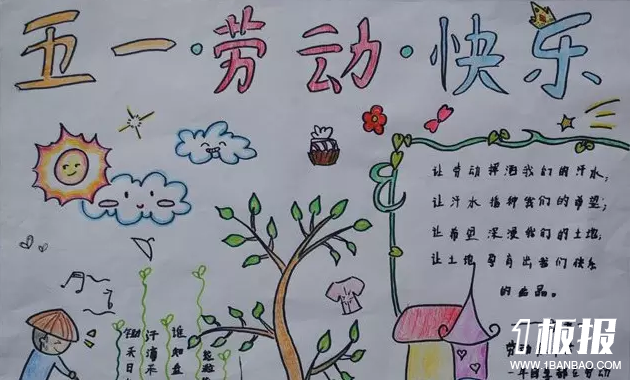 五一·劳动·快乐
让劳动挥洒我们的汗水,
让汗水播种我们的希望;
让希望深浸我们的土地,
让土地孕育出我们快乐
的品。
锄禾日
汗滴禾
谁知盘
粒粒
劳动
板报
WWW.1BANBAO.COM